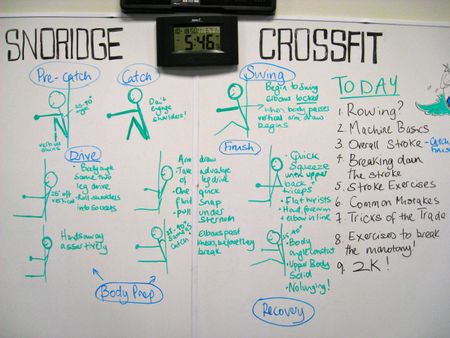 SNORIDGE
CROSSFIT
5:46
Pre-Catch
vertical
shins
Catch
Don't
engage
shoulders!
Drive
Body angle
same two
leg drive
Pull shoulders
into sockets
vertical
Arm draw
Take advantage
of leg drive
One quick
fluid snap
pull under
sternum
Hands away
assertively
Same as
Catch
Elbows past
knees, before they
break
Body Prep
Swing
Begin to swing
elbows locked
when body passes
vertical arm draw
begins
Finish
Quick
Squeeze
upper
back
Flat wrists
elbow in line
Body
angle constant
Upper Body
Solid
No lunging!
Recovery
TODAY
1. Rowing?
2. Machine Basics
3. Overall Stroke - Catch
4. Breaking down
the stroke
5. Stroke Exercises
6. Common Mistakes
7. Tricks of the Trade
8. Exercises to break
the monotony!
9. 2K!